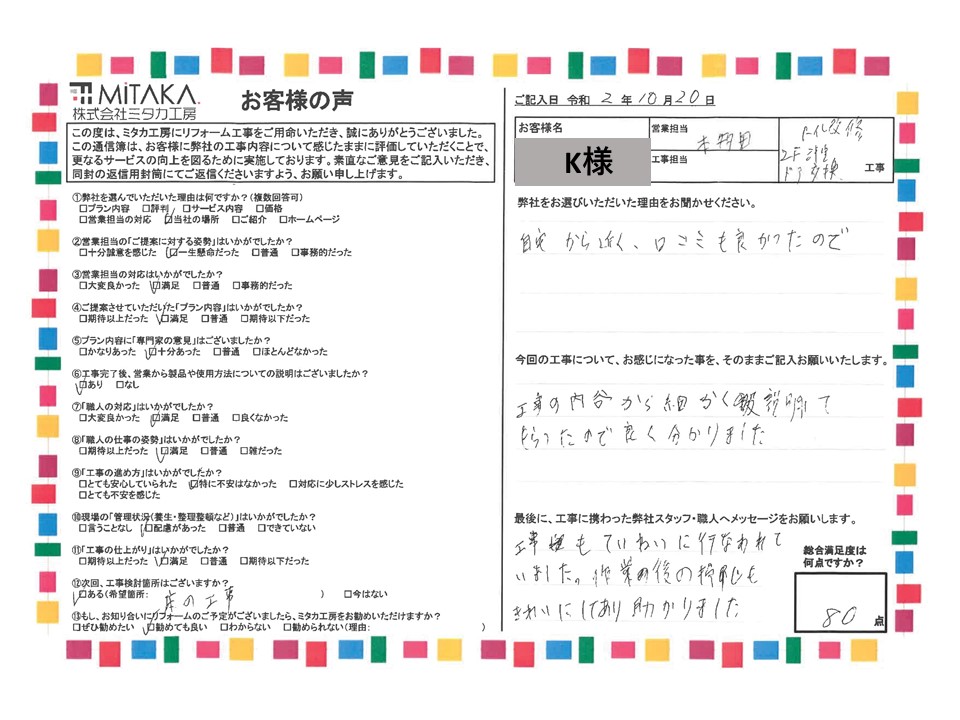 MiTAKA
株式会社ミタカ工房
お客様の声
この度は、ミタカ工房にリフォーム工事をご用命いただき、誠にありがとうございました。
この通信簿は、お客様に弊社の工事内容について感じたままに評価していただくことで、
更なるサービスの向上を図るために実施しております。素直なご意見をご記入いただき、
同封の返信用封筒にてご返信くださいますよう、お願い申し上げます。
①弊社を選んでいただいた理由は何ですか?(複数回答可)
□プラン内容 □評判 □サービス内容 □価格
□営業担当の対応 ☑当社の場所 □ご紹介 □ホームページ
②営業担当の「ご提案に対する姿勢」はいかがでしたか?
□十分誠意を感じた ☑一生懸命だった □普通 □事務的だった
③営業担当の対応はいかがでしたか?
□大変良かった ☑満足 □普通 □事務的だった
④ご提案させていただいた「プラン内容」はいかがでしたか?
□期待以上だった ☑満足 □普通 □期待以下だった
⑤プラン内容に「専門家の意見」はございましたか?
□かなりあった ☑十分あった □普通 □ほとんどなかった
⑥工事完了後、営業から製品や使用方法についての説明はございましたか?
☑あり □なし
⑦「職人の対応」はいかがでしたか?
□大変良かった ☑満足 □普通 □良くなかった
⑧「職人の仕事の姿勢」はいかがでしたか?
□期待以上だった ☑満足 □普通 □雑だった
⑨「工事の進め方」はいかがでしたか?
□とても安心していられた ☑特に不安はなかった □対応に少しストレスを感じた
□とても不安を感じた
⑩現場の「管理状況(養生・整理整頓など)」はいかがでしたか?
□言うことなし ☑配慮があった □普通 □できていない
⑪「工事の仕上がり」はいかがでしたか?
□期待以上だった ☑満足 □普通 □期待以下だった
⑫次回、工事検討箇所はございますか?
☑ある(希望箇所: 床の工事 ) □今はない
⑬もし、お知り合いにリフォームのご予定がございましたら、ミタカ工房をお勧めいただけますか?
□ぜひ勧めたい ☑勧めても良い □わからない □勧められない(理由: )
ご記入日 令和 2 年 10 月 20 日
お客様名
K様
営業担当
工事担当
トイレ改修
2F洋室
ドア交換
工事
弊社をお選びいただいた理由をお聞かせください。
自宅から近く、口コミも良かったので
今回の工事について、お感じになった事を、そのままご記入お願いいたします。
工事の内容から細かく説明して
もらったので良く分かりました
最後に、工事に携わった弊社スタッフ・職人へメッセージをお願いします。
工事もていねいに行なわれて
いました。作業の後の掃除も
きれいにしてあり助かりました
総合満足度は
何点ですか?
80 点